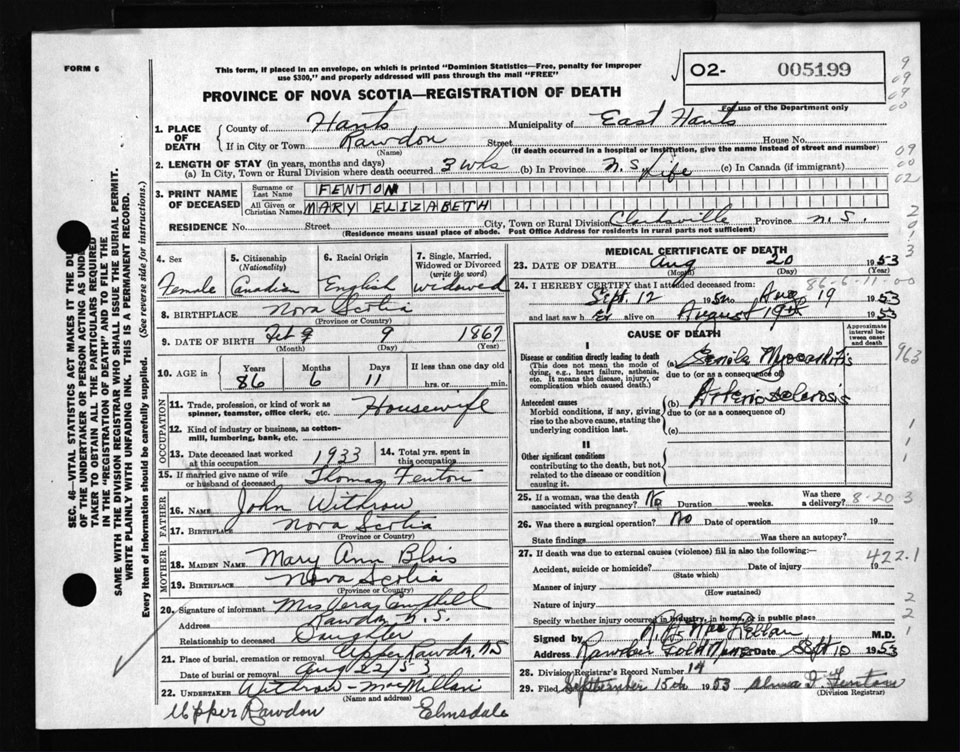 FORM 6
This form, if placed in an envelope, on which is printed "Dominion Statistics—Free, penalty for improper
use $300," and properly addressed will pass through the mail "FREE"
O2- 005199
For use of the Department only
PROVINCE OF NOVA SCOTIA—REGISTRATION OF DEATH
SEC. 46—VITAL STATISTICS ACT MAKES IT THE DU
OF THE UNDERTAKER OR PERSON ACTING AS UNDER
TAKER TO OBTAIN ALL THE PARTICULARS REQUIRED
IN THE "REGISTRATION OF DEATH" AND TO FILE THE
SAME WITH THE DIVISION REGISTRAR WHO SHALL ISSUE THE BURIAL PERMIT.
WRITE PLAINLY WITH UNFADING INK. THIS IS A PERMANENT RECORD.
Every item of information should be carefully supplied. (See reverse side for instructions.)
1. PLACE OF DEATH
County of Hants Municipality of East Hants
If in City or Town Rawdon Street House No.
(Name) (If death occurred in a hospital or institution, give the name instead of street and number)
2. LENGTH OF STAY (in years, months and days)
(a) In City, Town or Rural Division where death occurred 3 wks (b) In Province N.S. Life (c) In Canada (if immigrant)
3. PRINT NAME OF DECEASED
Surname or Last Name FENTON
All Given or Christian Names MARY ELIZABETH
RESIDENCE No. Street City, Town or Rural Division Clarksville Province N.S.
(Residence means usual place of abode. Post Office Address for residents in rural parts not sufficient)
4. Sex 5. Citizenship (Nationality) 6. Racial Origin 7. Single, Married, Widowed or Divorced (write the word)
Female Canadian English Widowed
8. BIRTHPLACE Nova Scotia
(Province or Country)
9. DATE OF BIRTH Feb 9 9 1867
(Month) (Day) (Year)
10. AGE in Years Months Days If less than one day old
86 6 11 hrs. or min.
OCCUPATION
11. Trade, profession, or kind of work as spinner, teamster, office clerk, etc. Housewife
12. Kind of industry or business, as cotton-mill, lumbering, bank, etc.
13. Date deceased last worked at this occupation 1933 14. Total yrs. spent in this occupation
15. If married give name of wife or husband of deceased Thomas Fenton
FATHER
16. NAME John Withrow
17. BIRTHPLACE Nova Scotia
(Province or Country)
MOTHER
18. MAIDEN NAME Mary Ann Blois
19. BIRTHPLACE Nova Scotia
(Province or Country)
20. Signature of informant Mrs Vera Campbell
Address Rawdon N.S.
Relationship to deceased Daughter
21. Place of burial, cremation or removal Upper Rawdon, NS
Date of burial or removal Aug 22/53
22. UNDERTAKER Withrow - MacMillan
(Name and address)
Upper Rawdon Elmsdale
MEDICAL CERTIFICATE OF DEATH
23. DATE OF DEATH Aug 20 1953
(Month) (Day) (Year)
86-6-11-00
24. I HEREBY CERTIFY that I attended deceased from
Sept. 12 1952 to Aug 19 1953
and last saw h er alive on August 19th 1953
CAUSE OF DEATH
Approximate interval between onset and death
I
Disease or condition directly leading to death (a) Senile Myocarditis
(This does not mean the mode of dying, e.g., heart failure, asthenia, etc. It means the disease, injury, or complication which caused death.)
due to (or as a consequence of)
Antecedent causes (b) Arteriosclerosis
Morbid conditions, if any, giving rise to the above cause, stating the underlying condition last.
due to (or as a consequence of)
(c)
II
Other significant conditions
contributing to the death, but not related to the disease or condition causing it.
25. If a woman, was the death associated with pregnancy? No Duration weeks. Was there a delivery? 8-20 3
26. Was there a surgical operation? No Date of operation 19
State findings Was there an autopsy?
27. If death was due to external causes (violence) fill in also the following:— 422.1
Accident, suicide or homicide? Date of injury 19
(State which)
Manner of injury
(How sustained)
Nature of injury
Specify whether injury occurred in industry, in home, or in public place
Signed by M.D.
Address Rawdon Gold Mines Date Sept 10 1953
28. Division Registrar's Record Number 14
29. Filed September 15th 1953 Alma F. Fenton
(Division Registrar)
963